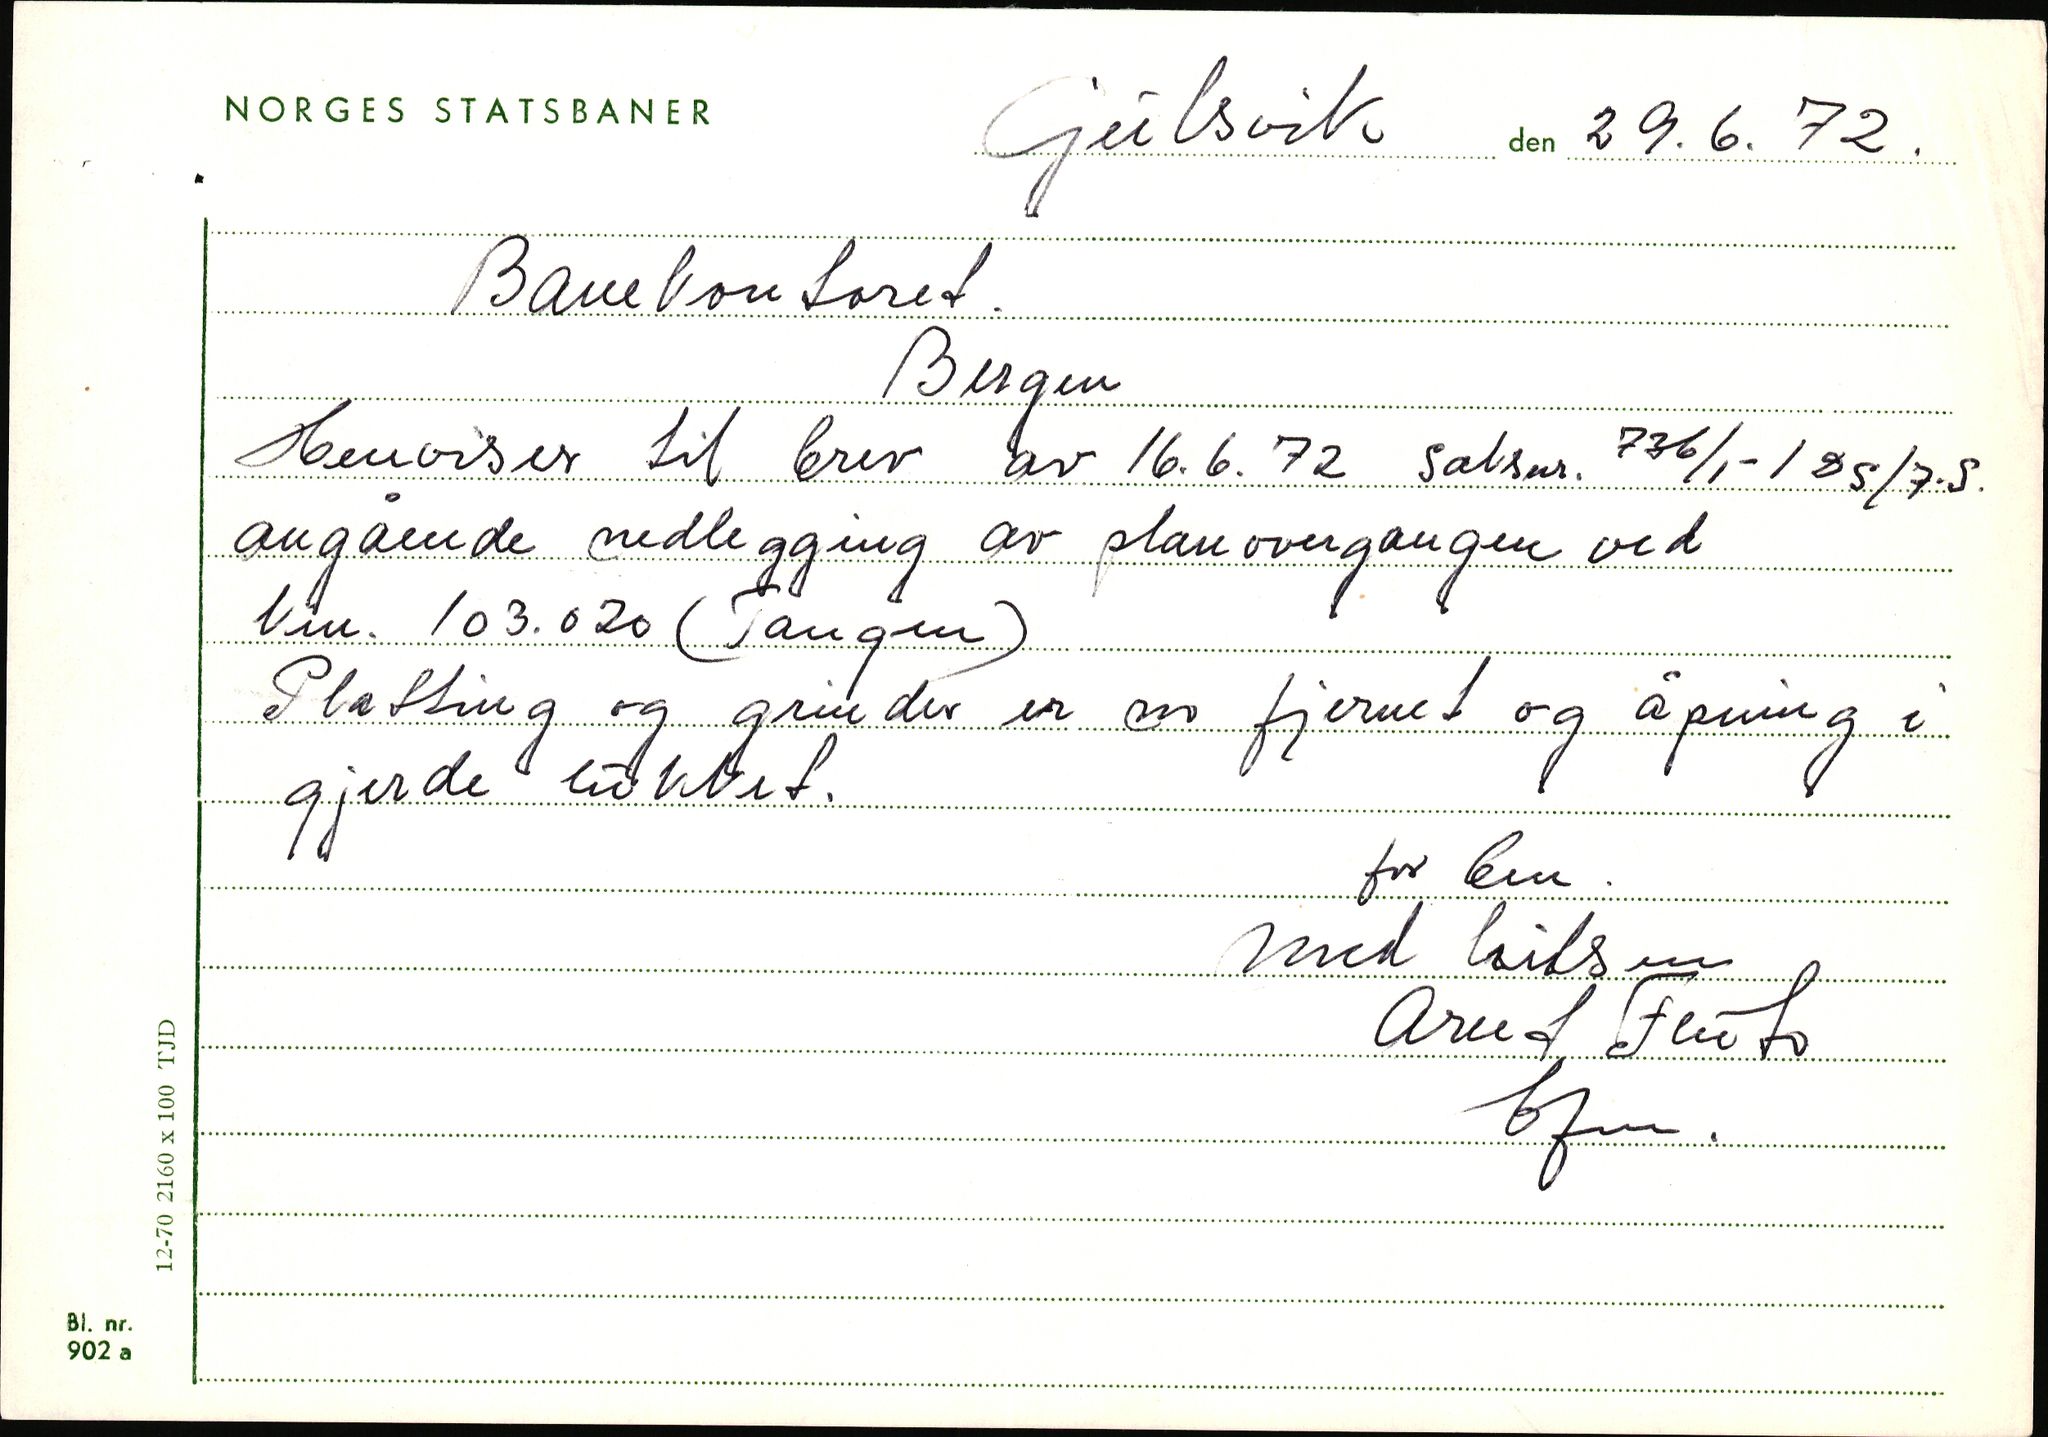 NORGES STATSBANER
Gulsvik den 29.6.72.
Banekontoret.
Bergen
Henviser til brev av 16.6.72 saksnr. 736/1-1 DS/7.S.
angående nedlegging av planovergangen ved
km. 103.020 (Tangen)
Platting og grinder er no fjernet og åpning i
gjerde lukket.
for bm.
Med hilsen
Arnt
bfm.
12-70 2160 x 100 TJD
Bl. nr.
902 a